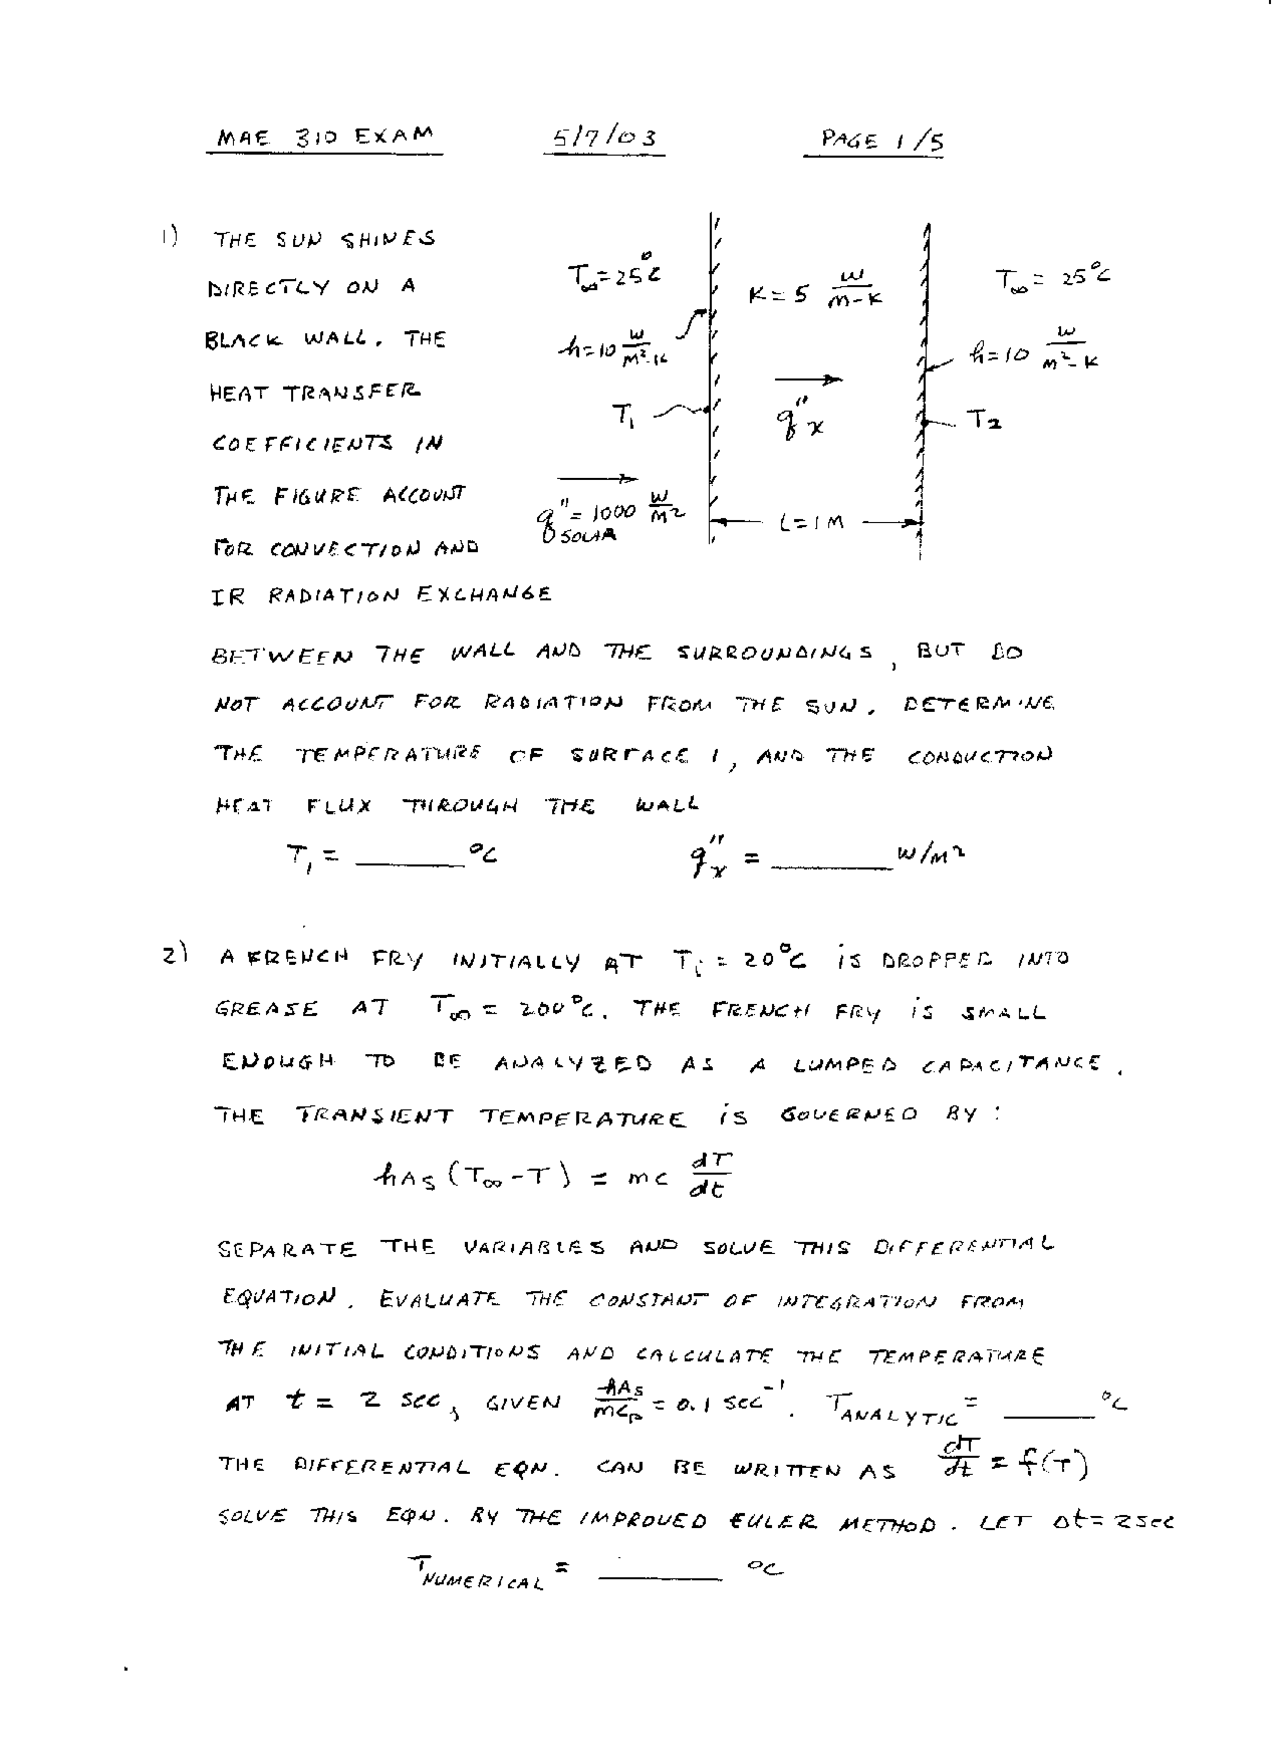 MAE 310 EXAM 5/7/03 PAGE 1/5
1) THE SUN SHINES
DIRECTLY ON A
BLACK WALL. THE
HEAT TRANSFER
COEFFICIENTS IN
THE FIGURE ACCOUNT
FOR CONVECTION AND
IR RADIATION EXCHANGE
T∞=25°C
h=10 W/M²-K
T₁
q"SOLAR = 1000 W/M²
K=5 W/M-K
q"x
L=1M
T∞=25°C
h=10 W/M²-K
T2
BETWEEN THE WALL AND THE SURROUNDINGS, BUT DO
NOT ACCOUNT FOR RADIATION FROM THE SUN. DETERMINE
THE TEMPERATURE OF SURFACE 1, AND THE CONDUCTION
HEAT FLUX THROUGH THE WALL
T₁ = ______ °C q"x = ______ W/M²
2) A FRENCH FRY INITIALLY AT Ti = 20°C is DROPPED INTO
GREASE AT T∞ = 200°C. THE FRENCH FRY is SMALL
ENOUGH TO BE ANALYZED AS A LUMPED CAPACITANCE.
THE TRANSIENT TEMPERATURE is GOVERNED BY:
hAs(T∞-T) = mc dT/dt
SEPARATE THE VARIABLES AND SOLVE THIS DIFFERENTIAL
EQUATION. EVALUATE THE CONSTANT OF INTEGRATION FROM
THE INITIAL CONDITIONS AND CALCULATE THE TEMPERATURE
AT t = 2 sec, GIVEN hAs/mcp = 0.1 sec⁻¹. TANALYTIC = ______ °C
THE DIFFERENTIAL EQN. CAN BE WRITTEN AS dT/dt = f(T)
SOLVE THIS EQN. BY THE IMPROVED EULER METHOD. LET Δt= 2sec
TNUMERICAL = ______ °C